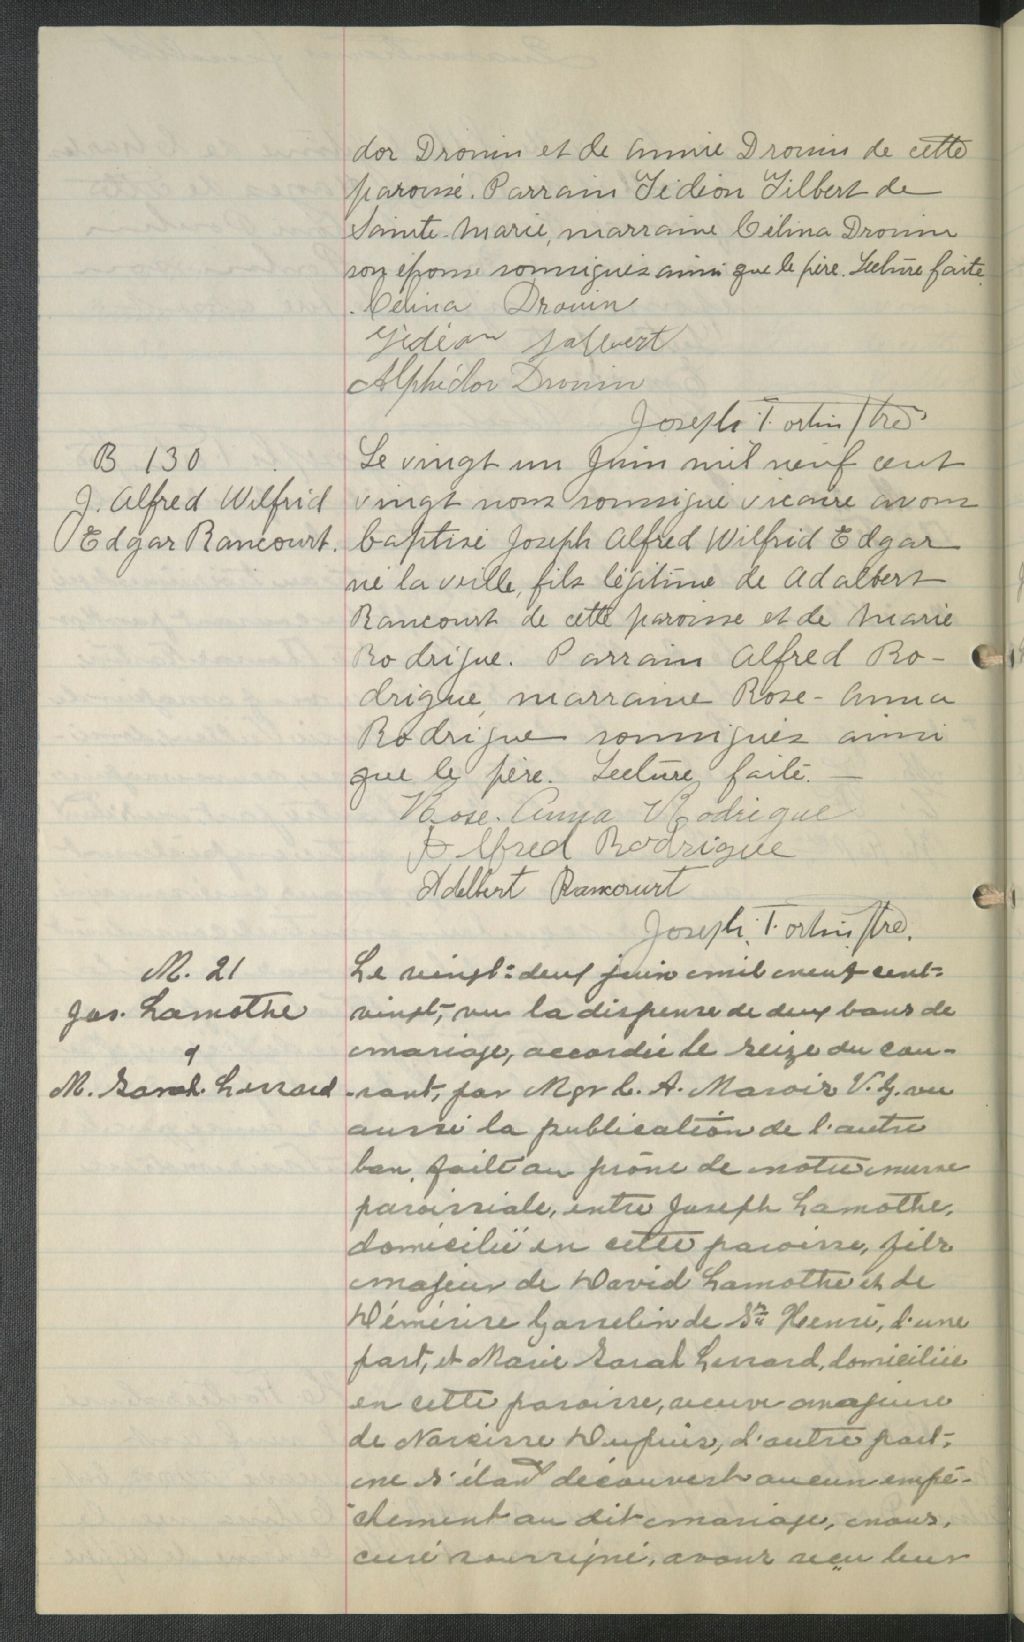 dor Drouin et de Annie Drouin de cette
paroisse. Parrain Gédéon Gilbert de
Sainte-Marie, marraine Célina Drouin
son épouse soussignés ainsi que le père. Lecture faite.
Célina Drouin
Gédéon Jalbert
Alphédor Drouin
Joseph T. Fortin Ptre
B 130
J. Alfred Wilfrid
Edgar Rancourt.
Le vingt un Juin mil neuf cent
vingt nous soussigné vicaire avons
baptisé Joseph Alfred Wilfrid Edgar
né la veille, fils légitime de Adalbert
Rancourt de cette paroisse et de Marie
Rodrigue. Parrain Alfred Ro-
drigue, marraine Rose-Anna
Rodrigue soussignés ainsi
que le père. Lecture faite. —
Rose-Anna Rodrigue
Alfred Rodrigue
Adelbert Rancourt
Joseph T. Fortin Ptre.
M. 21
Jos. Lamothe
&
M. Sarah Lessard
Le vingt-deux juin mil neuf cent-
vingt, vu la dispense de deux bans de
mariage, accordée le seize du cou-
-rant, par Mgr C. A. Marois V. G. vu
aussi la publication de l'autre
ban, faite au prône de notre messe
paroissiale, entre Joseph Lamothe,
domicilié en cette paroisse, fils
majeur de David Lamothe et de
Démérise Gosselin de St Henri, d'une
part, et Marie Sarah Lessard, domiciliée
en cette paroisse, veuve majeure
de Narcisse Dupuis, d'autre part,
ne s'étant découvert aucun empê-
-chement au dit mariage, nous,
curé soussigné, avons reçu leur